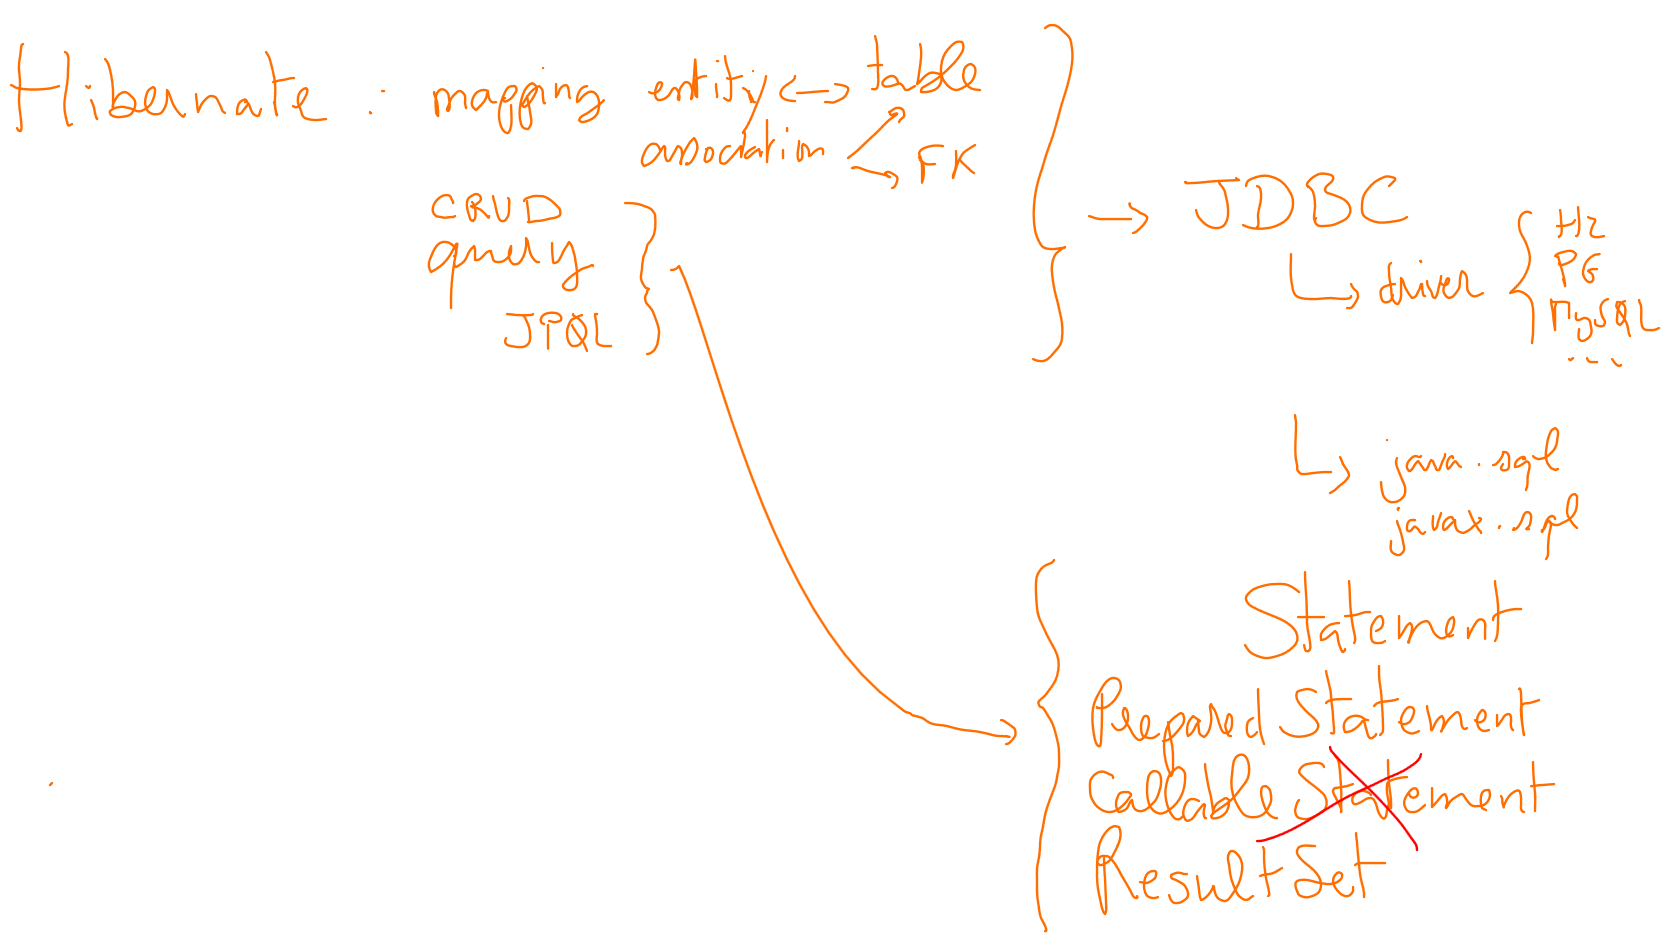 Hibernate : mapping entity ↔ table
association → FK
CRUD
query
JPQL
→ JDBC
→ driver { H2
PG
MySQL
...
→ java.sql
javax.sql
Statement
Prepared Statement
Callable Statement
Result Set